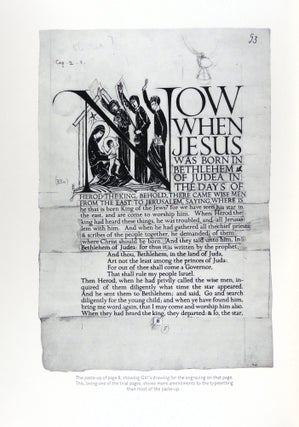 93
Cap. 2. 1.
NOW
WHEN
JESUS
WAS BORN IN
BETHLEHEM
OF JUDEA IN
THE DAYS OF
HEROD THE KING, BEHOLD, THERE CAME WISE MEN
FROM THE EAST TO JERUSALEM, SAYING, WHERE IS
he that is born King of the Jews? for we have seen his star in
the east, and are come to worship him. When Herod the
king had heard these things, he was troubled, and all Jerusa-
lem with him. And when he had gathered all the chief priests
& scribes of the people together, he demanded of them
where Christ should be born. And they said unto him, In
Bethlehem of Judea: for thus it is written by the prophet,
And thou, Bethlehem, in the land of Juda,
Art not the least among the princes of Juda:
For out of thee shall come a Governor,
That shall rule my people Israel.
Then Herod, when he had privily called the wise men, in-
quired of them diligently what time the star appeared.
And he sent them to Bethlehem; and said, Go and search
diligently for the young child; and when ye have found him,
bring me word again, that I may come and worship him also.
When they had heard the king, they departed: & lo, the star,
8
The paste-up of page 8, showing Gill's drawing for the engraving on that page.
This, being one of the trial pages, shows more amendments to the typesetting
than most of the paste-up.